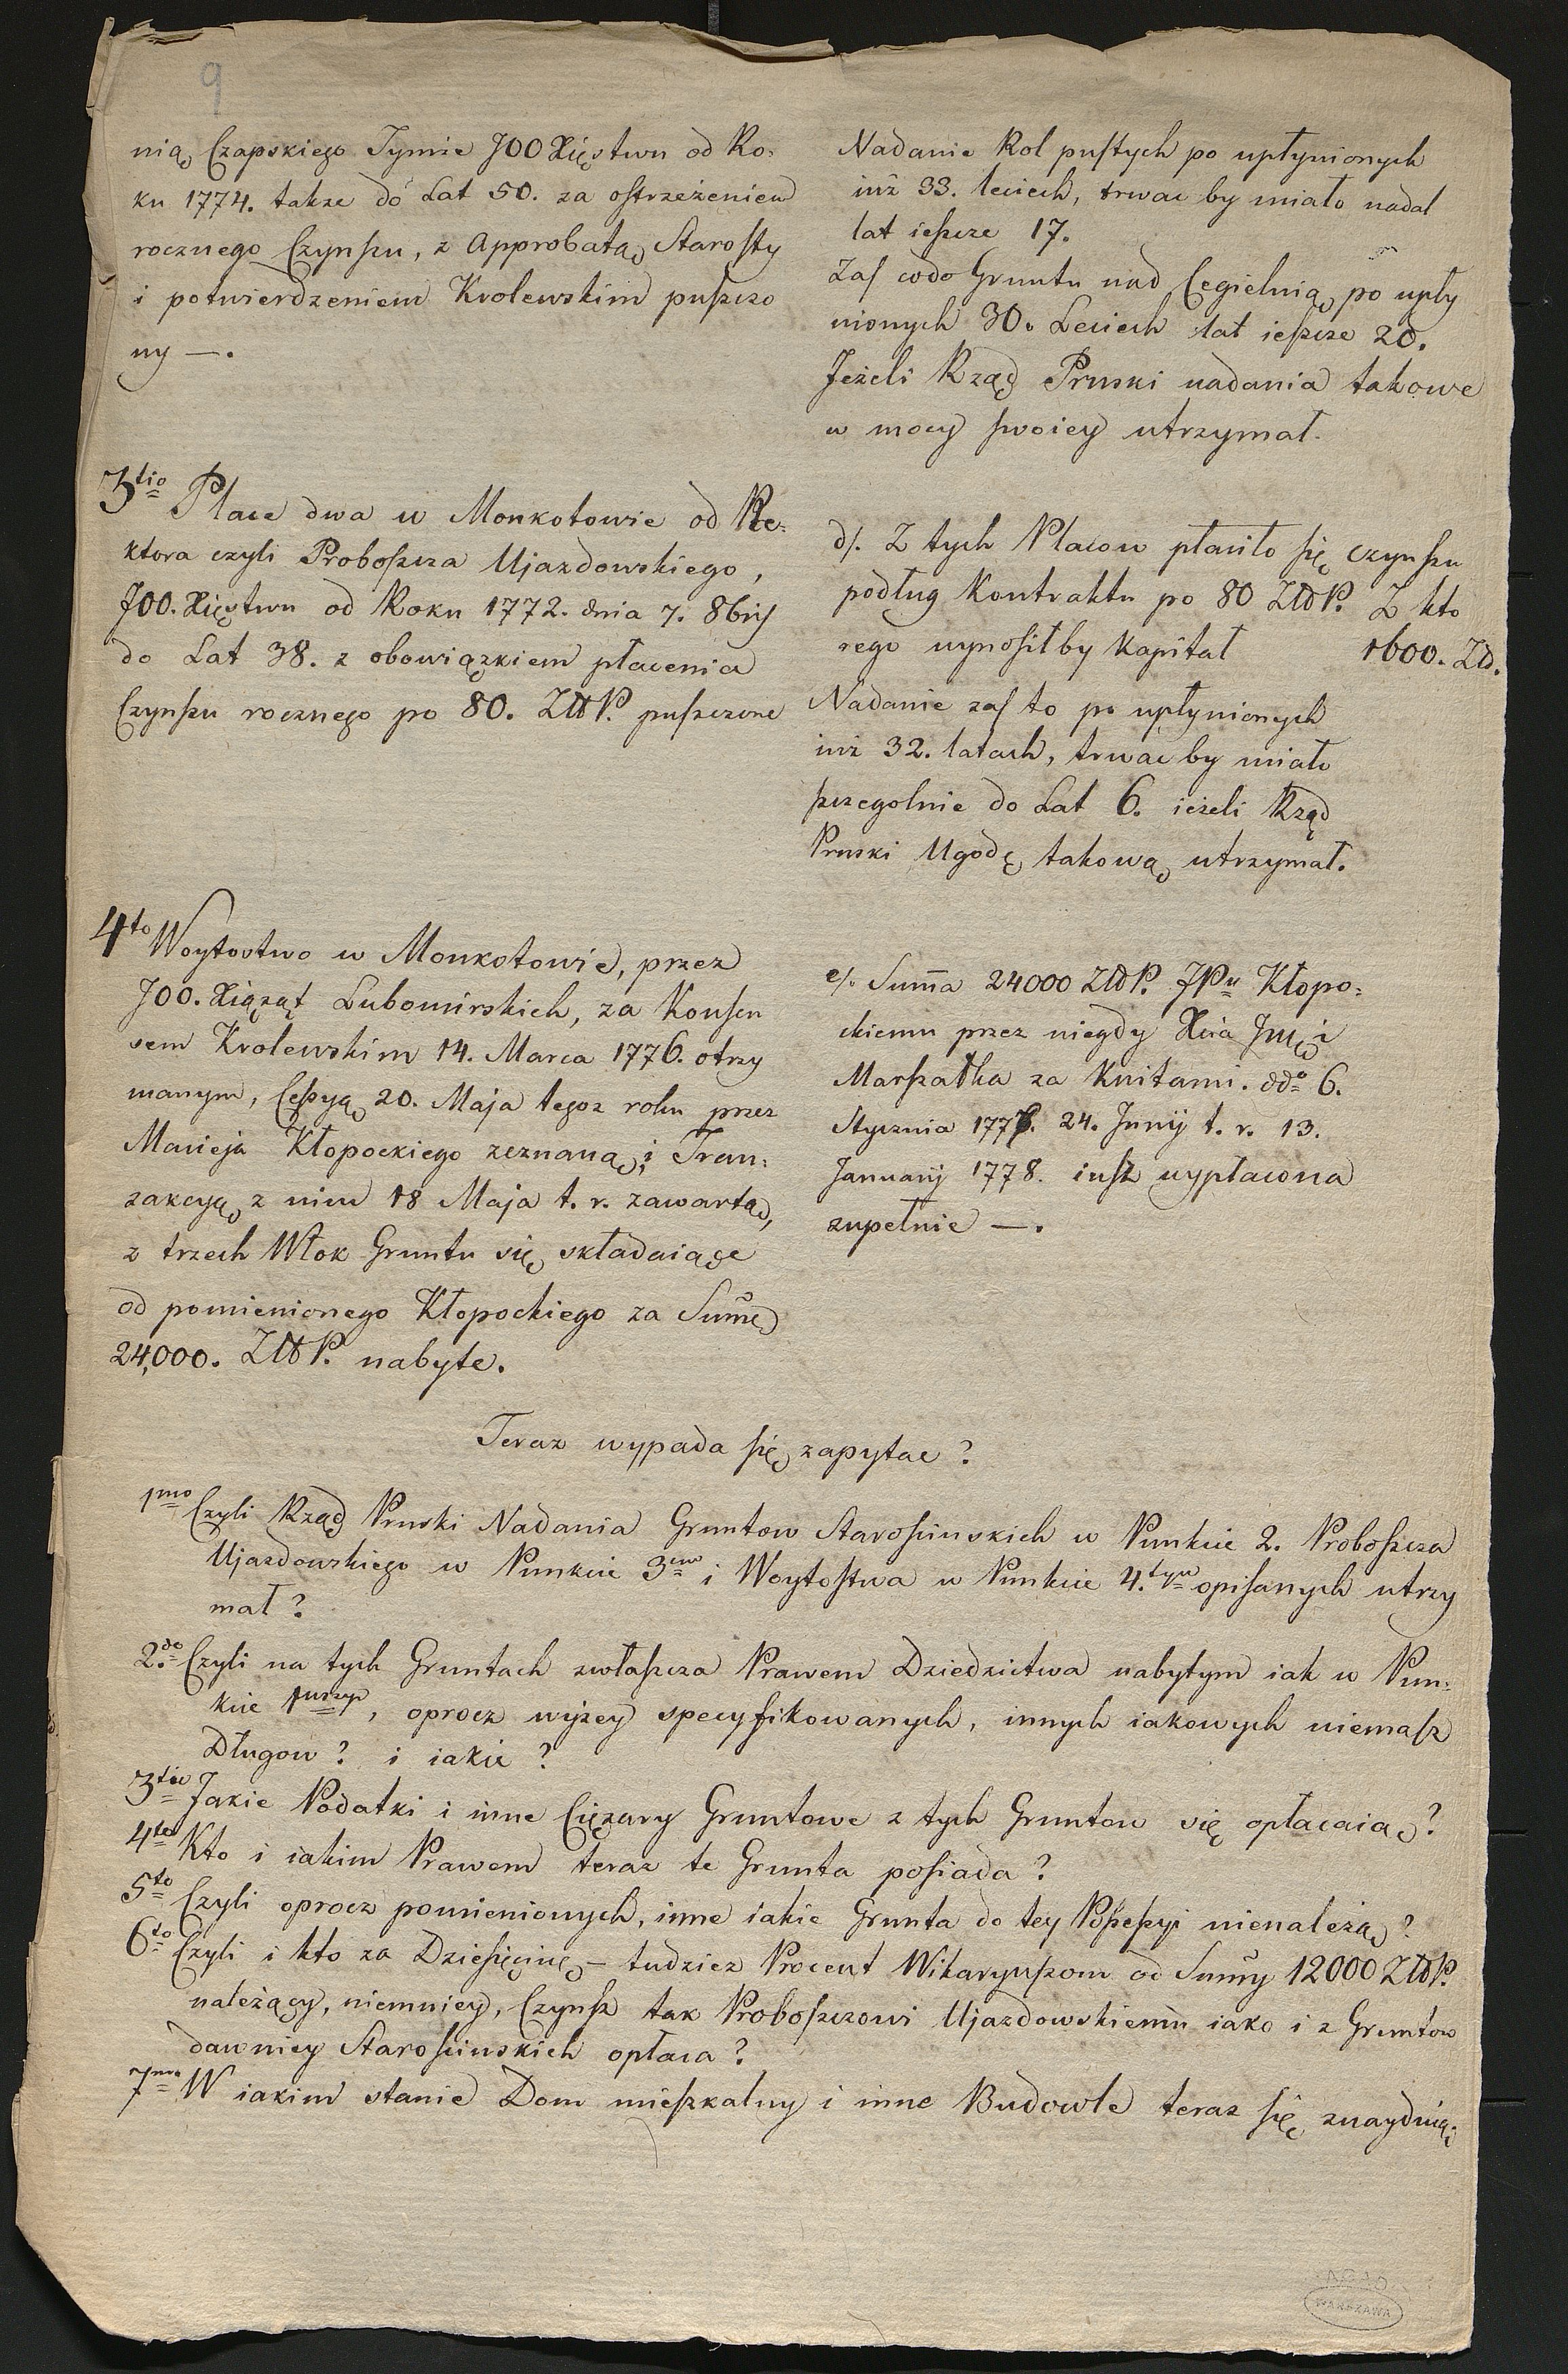 9
nią Czapskiego Tymże JOO Xięstwu od Ro-
ku 1774. także do Lat 50. za ostrzeżeniem
rocznego Czynszu, z Approbatą Starosty
i potwierdzeniem Krolewskim puszczo
ny —.
Nadanie Rol pustych po upłynionych
iuż 33. leciech, trwac by miało nadal
lat ieszcze 17.
Zas codo Gruntu nad Cegielnią po upły
nionych 30. Leciech lat ieszcze 20.
Jeżeli Rząd Pruski nadania takowe
w mocy swoiey utrzymał.
3tio Place dwa w Monkotowie od Re-
ktora czyli Proboszcza Ujazdowskiego,
JOO. Xięstwu od Roku 1772. dnia 7. 8bris
do Lat 38. z obowiązkiem płacenia
Czynszu rocznego po 80. ZłłP. puszczone
d/. Z tych Placow płaciło się czynszu
podług Kontraktu po 80 ZłłP. Z kto
rego wynosiłby Kapitał 1600. Zł.
Nadanie zas to po upłynionych
iuż 32. latach, trwac by miało
szczegolnie do Lat 6. ieżeli Rząd
Pruski Ugodę takową utrzymał.
4to Woytostwo w Monkotowie, przez
JOO. Xiąząt Lubomirskich, za Konsen
sem Krolewskim 14. Marca 1776. otrzy
manym, Cessyą 20. Maja tegoz roku przez
Macieja Kłopockiego zeznaną i Tran-
zakcyą z nim 18 Maja t. r. zawartą,
z trzech Włok Gruntu się składaiące
od pomienionego Kłopockiego za Sum̃ę
24,000. ZłłP. nabyte.
e/. Sum̃a 24000 ZłłP. JPu Kłopo-
ckiemu przez niegdy Xcia Jmci
Marszałka za Kwitami. ddo 6.
Stycznia 1777. 24. Junij t. r. 13.
Januarij 1778. iusz wypłacona
zupełnie —.
Teraz wypada się zapytac?
1mo Czyli Rząd Pruski Nadania Gruntow Staroscinskich w Punkcie 2. Proboszcza
Ujazdowskiego w Punkcie 3cim i Woytostwa w Punkcie 4.tym opisanych utrzy
mał?
2do Czyli na tych Gruntach zwłaszcza Prawem Dziedzictwa nabytym iak w Pun-
kcie 1wszym, oprocz wyżey specyfikowanych, innych iakowych niemasz
Długow? i iakie?
3tio Jakie Podatki i inne Ciężary Gruntowe z tych Gruntow się opłacaią?
4to Kto i iakim Prawem teraz te Grunta posiada?
5to Czyli oprocz pomienionych, inne iakie Grunta do tey Possessyi nienależą?
6to Czyli i kto za Dziesięcinę — tudziez Procent Wikaryuszom od Sum̃y 12000 ZłłP.
należący, niemniey, Czynsz tak Proboszczowi Ujazdowskiemu iako i z Gruntow
dawniey Staroscinskich opłaca?
7mo W iakim stanie Dom mieszkalny i inne Budowle teraz się znayduią;
AGAD
WARSZAWA